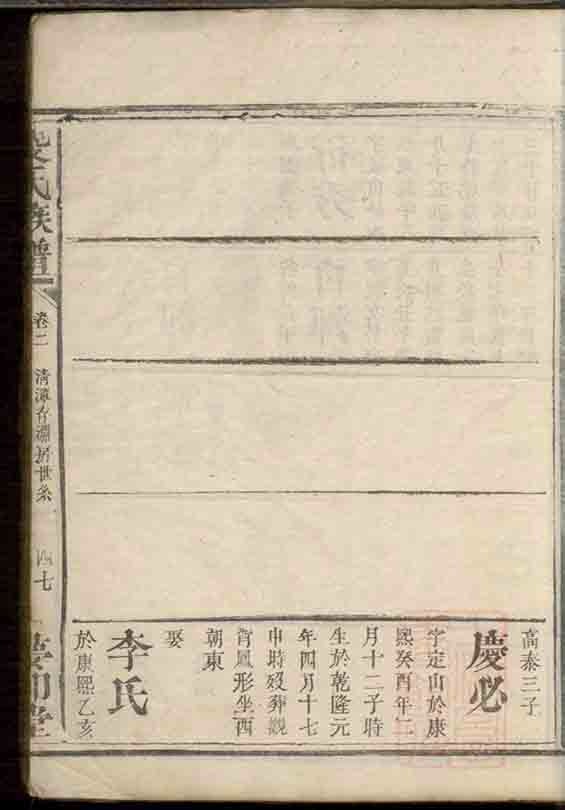 高泰三子
慶必
字定山於康
熙癸酉年二
月十二子時
生於乾隆元
年四月十七
申時歿葬觀
背鳳形坐酉
朝東
娶
李氏
於康熙乙亥
氏族譜
卷二
四七